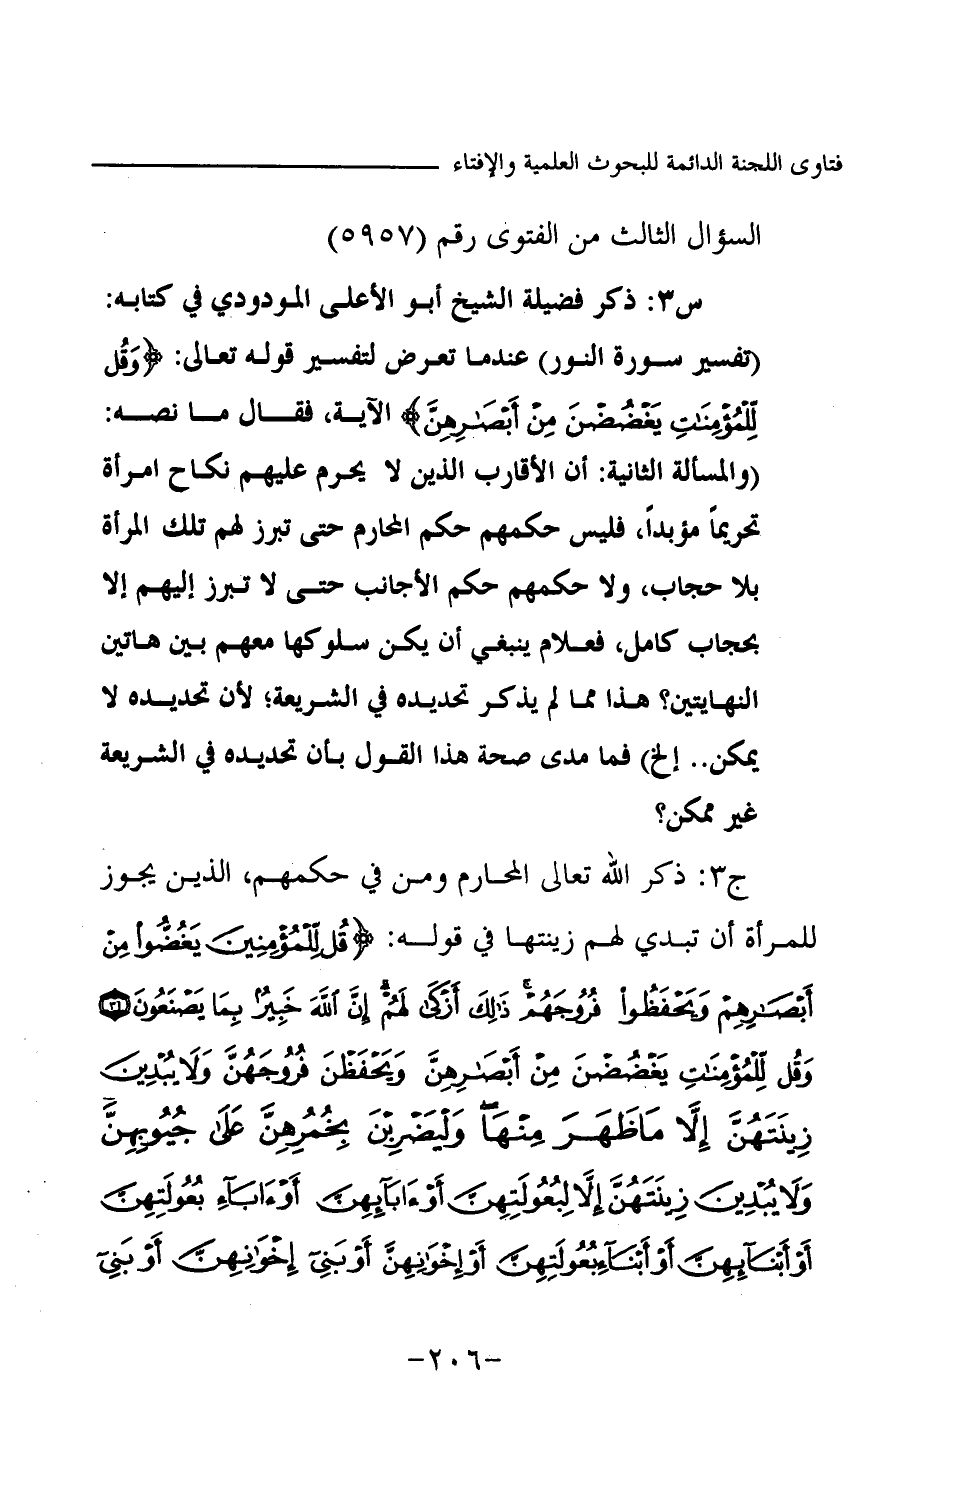 فتاوى اللجنة الدائمة للبحوث العلمية والإفتاء
السؤال الثالث من الفتوى رقم (٥٩٥٧)
س٣: ذكر فضيلة الشيخ أبو الأعلى المودودي في كتابه:
(تفسير سورة النور) عندما تعرض لتفسير قوله تعالى: ﴿وَقُل
لِّلْمُؤْمِنَٰتِ يَغْضُضْنَ مِنْ أَبْصَٰرِهِنَّ﴾ الآية، فقال ما نصه:
(والمسألة الثانية: أن الأقارب الذين لا يحرم عليهم نكاح امرأة
تحريماً مؤبداً، فليس حكمهم حكم المحارم حتى تبرز لهم تلك المرأة
بلا حجاب، ولا حكمهم حكم الأجانب حتى لا تبرز إليهم إلا
بحجاب كامل، فعلام ينبغي أن يكن سلوكها معهم بين هاتين
النهايتين؟ هذا مما لم يذكر تحديده في الشريعة؛ لأن تحديده لا
يمكن.. إلخ) فما مدى صحة هذا القول بأن تحديده في الشريعة
غير ممكن؟
ج٣: ذكر الله تعالى المحارم ومن في حكمهم، الذين يجوز
للمرأة أن تبدي لهم زينتها في قوله: ﴿قُل لِّلْمُؤْمِنِينَ يَغُضُّوا۟ مِنْ
أَبْصَٰرِهِمْ وَيَحْفَظُوا۟ فُرُوجَهُمْ ۚ ذَٰلِكَ أَزْكَىٰ لَهُمْ ۗ إِنَّ ٱللَّهَ خَبِيرٌۢ بِمَا يَصْنَعُونَ ٣٠
وَقُل لِّلْمُؤْمِنَٰتِ يَغْضُضْنَ مِنْ أَبْصَٰرِهِنَّ وَيَحْفَظْنَ فُرُوجَهُنَّ وَلَا يُبْدِينَ
زِينَتَهُنَّ إِلَّا مَا ظَهَرَ مِنْهَا ۖ وَلْيَضْرِبْنَ بِخُمُرِهِنَّ عَلَىٰ جُيُوبِهِنَّ ۖ
وَلَا يُبْدِينَ زِينَتَهُنَّ إِلَّا لِبُعُولَتِهِنَّ أَوْ ءَابَآئِهِنَّ أَوْ ءَابَآءِ بُعُولَتِهِنَّ
أَوْ أَبْنَآئِهِنَّ أَوْ أَبْنَآءِ بُعُولَتِهِنَّ أَوْ إِخْوَٰنِهِنَّ أَوْ بَنِىٓ إِخْوَٰنِهِنَّ أَوْ بَنِىٓ
-٢٠٦-